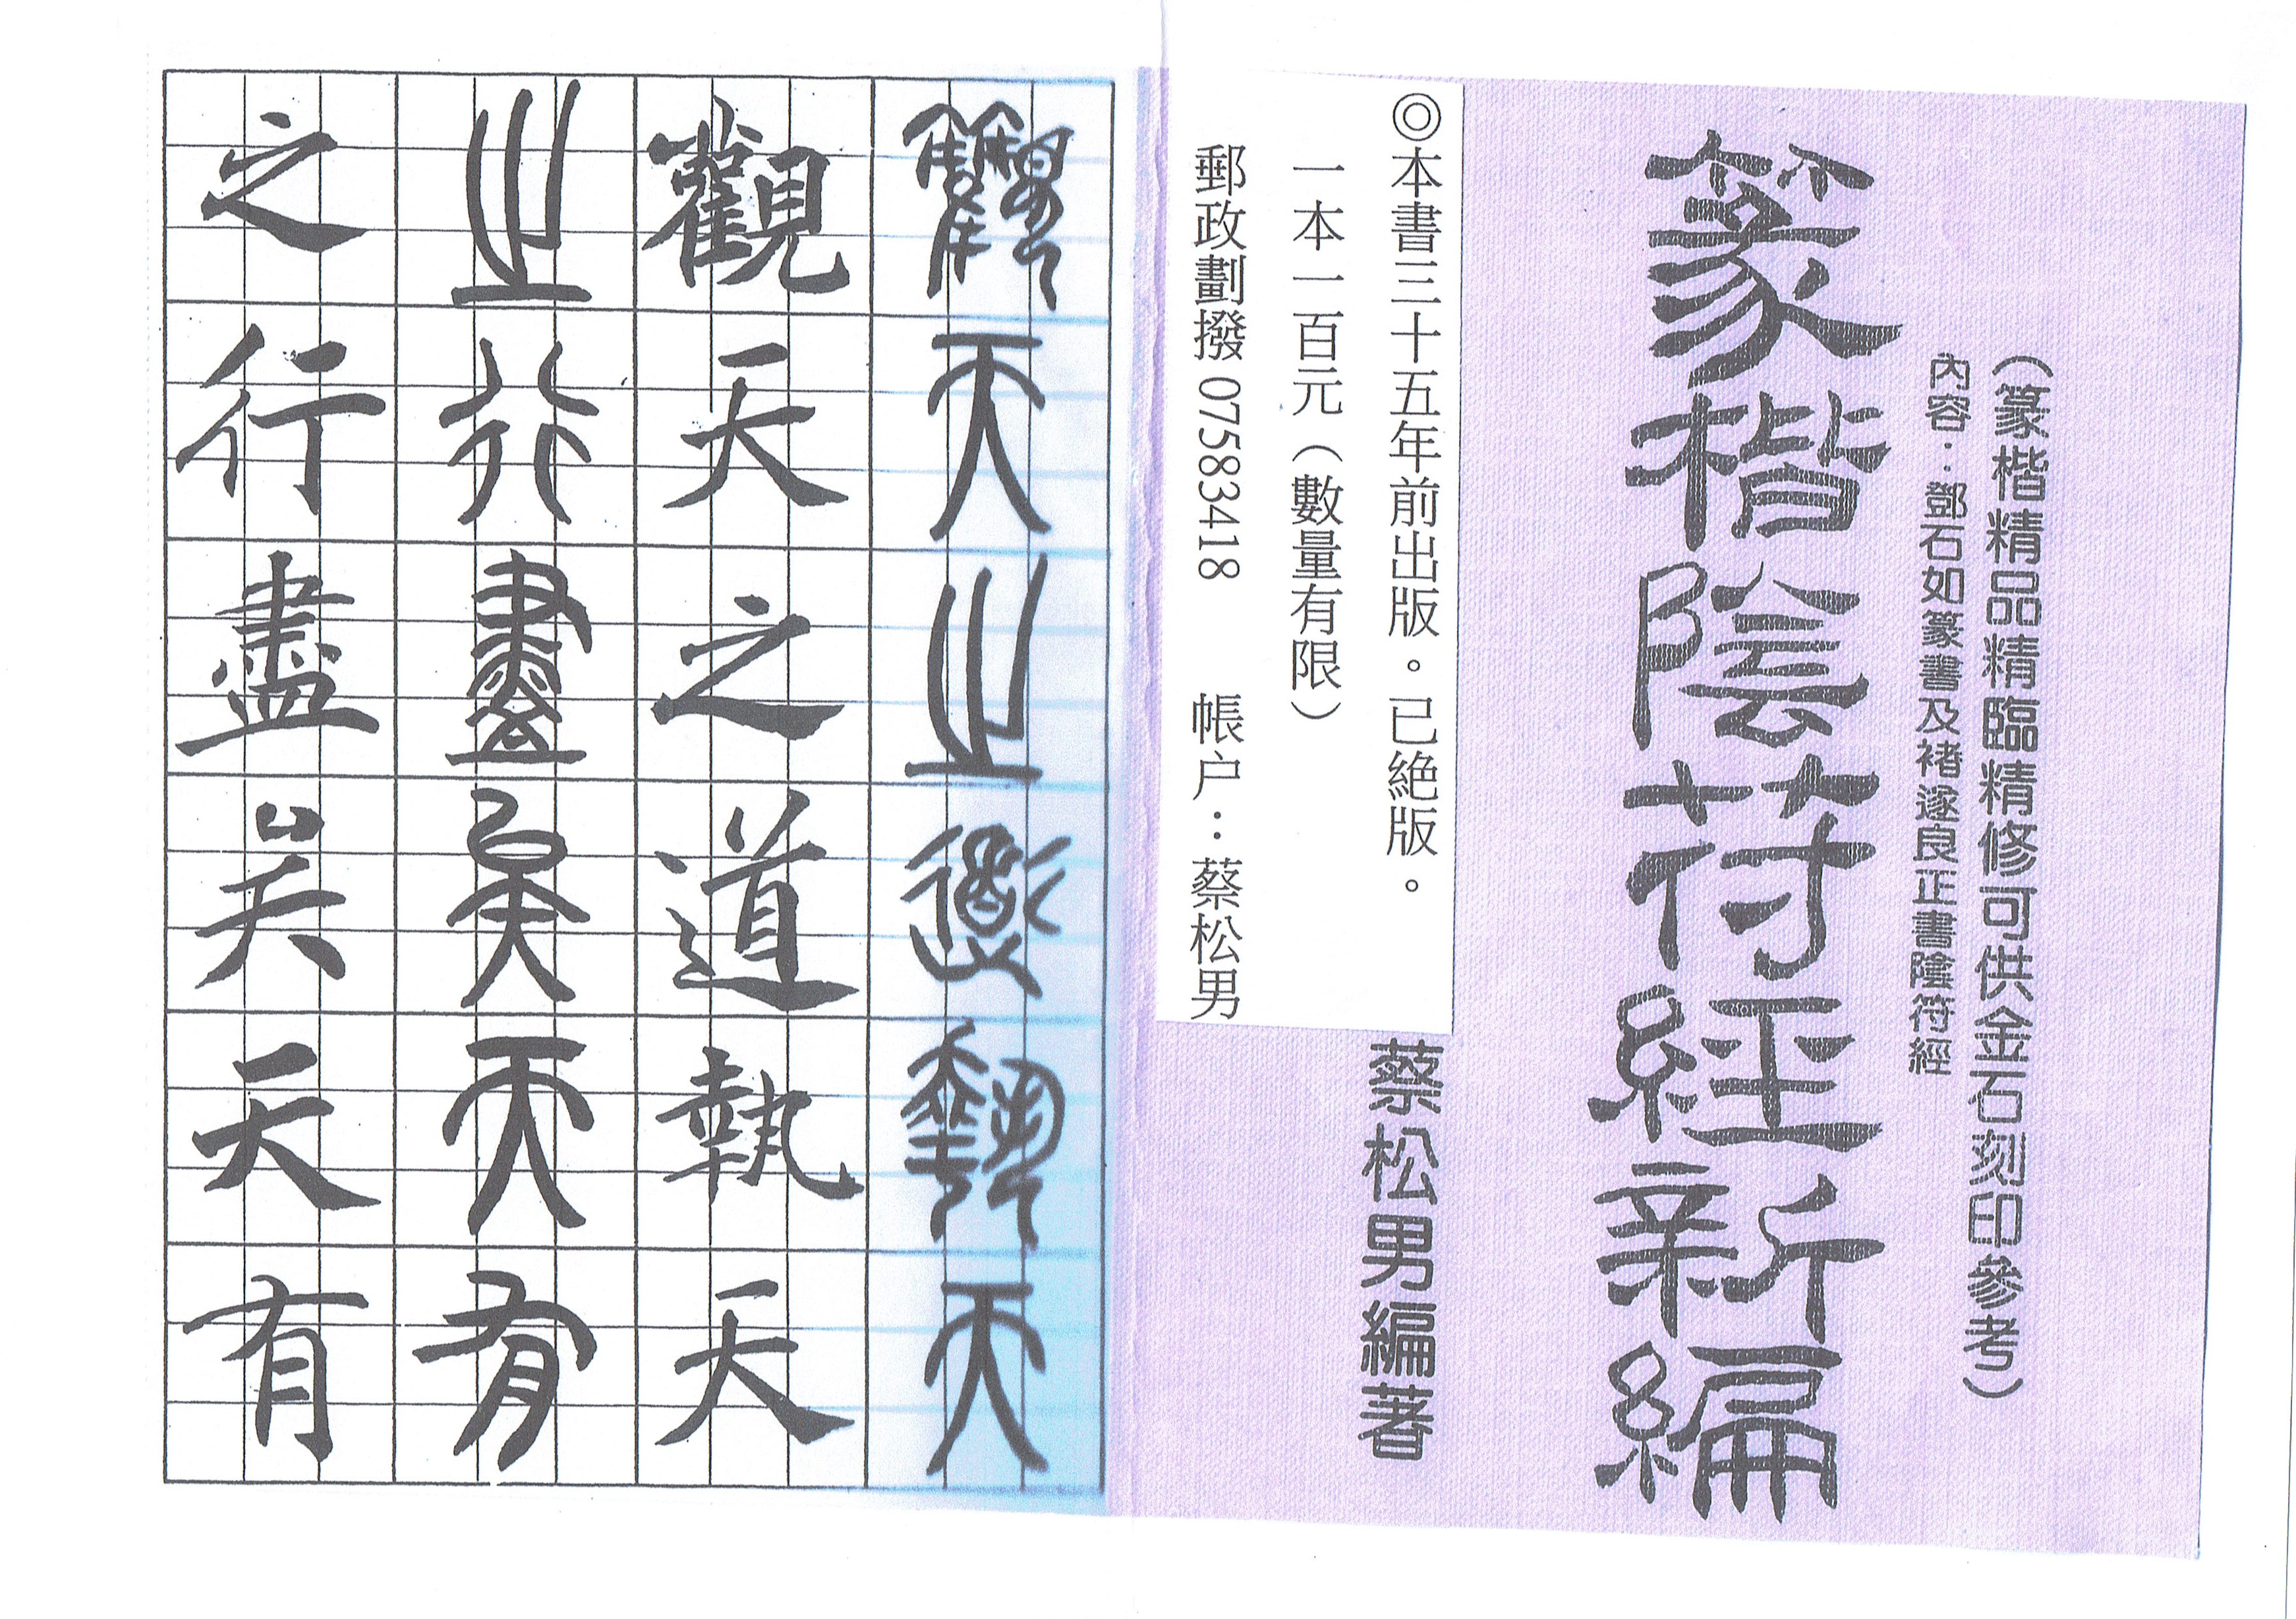 （篆楷精品精臨精修可供金石刻印參考）
內容：鄧石如篆書及褚遂良正書陰符經
篆楷陰符經新編
蔡松男編著
◎本書三十五年前出版。已絶版。
一本一百元（數量有限）
郵政劃撥 07583418 帳户：蔡松男
觀天之道執天
觀天之道執天
之行盡矣天有
之行盡矣天有